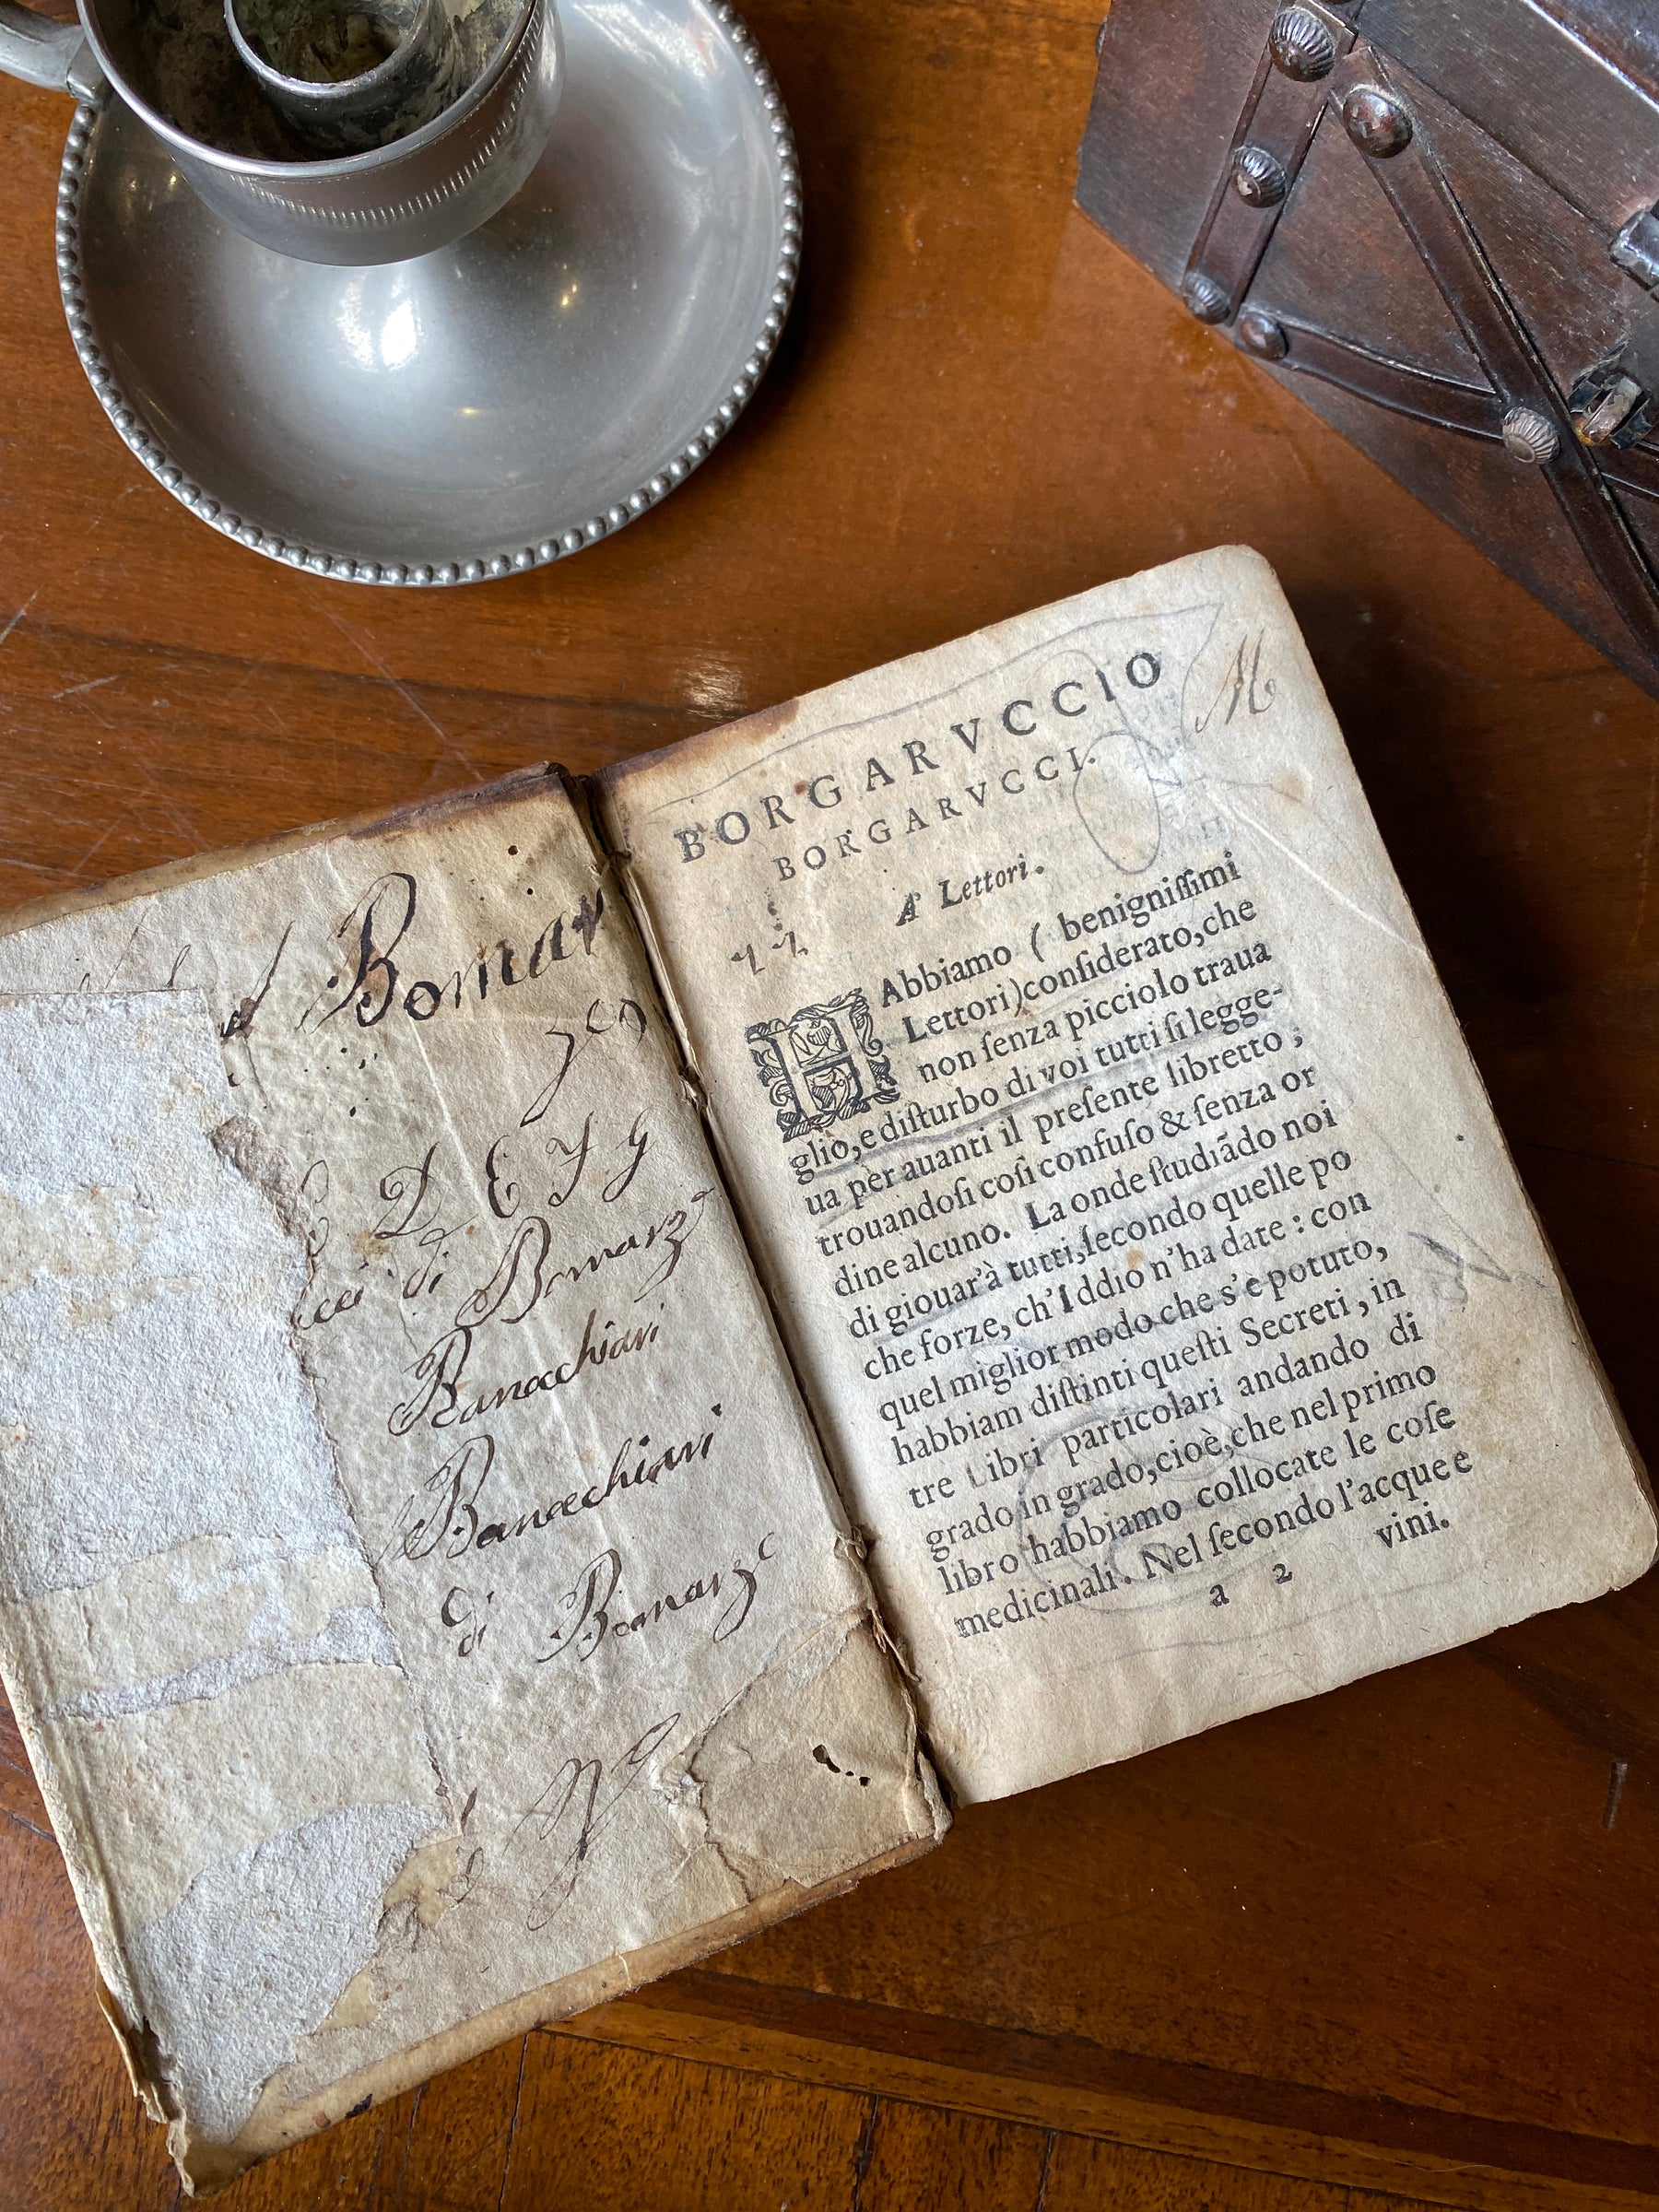 Bomar
zo
D E F g
di Bomarzo
Banachiari
Banachiari
di Bomarzo
M
BORGARVCCIO
BORGARVCCI.
A' Lettori.
HAbbiamo ( benigniſſimi
Lettori)conſiderato,che
non ſenza picciolo traua
glio,e diſturbo di voi tutti ſi legge-
ua per auanti il preſente libretto ;
trouandoſi coſi confuſo & ſenza or
dine alcuno. La onde ſtudiãdo noi
di giouar'à tutti,ſecondo quelle po
che forze, ch'Iddio n'ha date : con
quel miglior modo che s'è potuto,
habbiam diſtinti queſti Secreti , in
tre Libri particolari andando di
grado in grado,cioè,che nel primo
libro habbiamo collocate le coſe
medicinali. Nel ſecondo l'acque e
a 2 vini.